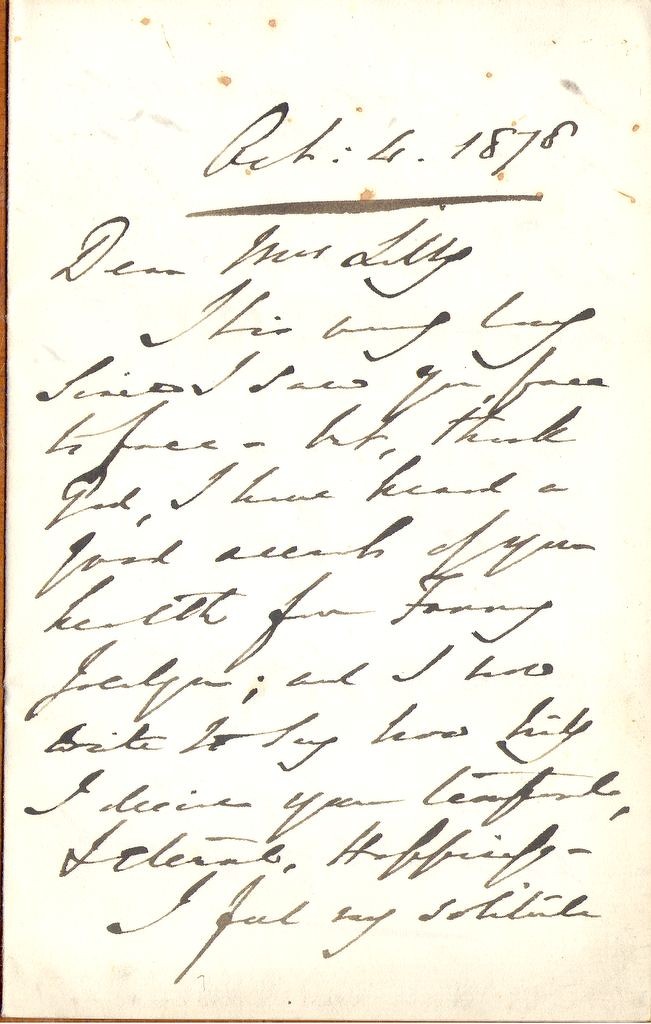 Oct: 4. 1878
Dear Mrs Lilly
This very long
since I saw you, face
to face – but, thank
God, I have heard a
good account of your
health from Fanny
Jocelyn; and I now
write to say how truly
I desire your temporal,
& eternal, Happiness –
I feel my solitude